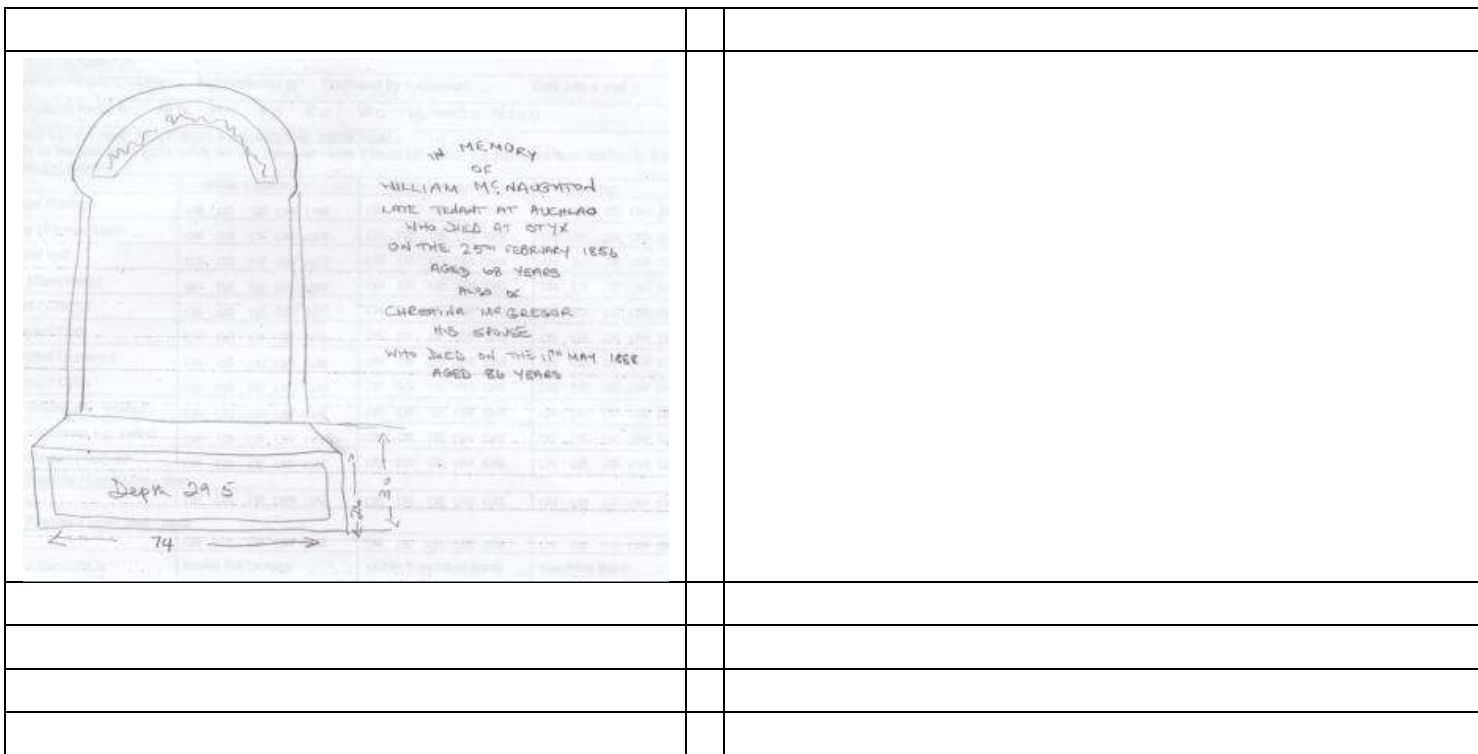 IN MEMORY
OF
WILLIAM Mc NAUGHTON
LATE TENANT AT AUCHLAD
WHO DIED AT STYX
ON THE 25TH FEBRUARY 1856
AGED 68 YEARS
ALSO OF
CHRISTINA McGREGOR
HIS SPOUSE
WHO DIED ON THE MAY 1888
AGED 86 YEARS
Depth 29.5
26
30
74